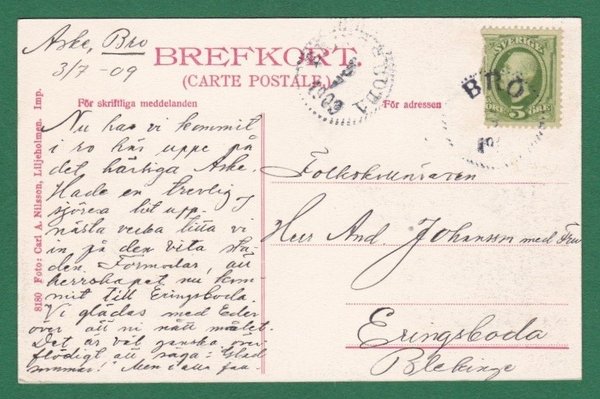 Aske, Bro
3/7-09
BREFKORT
(CARTE POSTALE.)
För skriftliga meddelanden
För adressen
SVERIGE
ÖRE 5 ÖRE
BRO
8180 Foto: Carl A. Nilsson, Liljeholmen. Imp.
Nu ha vi kommit
i ro här uppe på
det härliga Aske.
Hade en trevlig
sjöresa hit upp. I
nästa vecka titta vi
in på den vita sta-
den. Förmodar, att
herrskapet nu kom-
mit till Eringsboda.
Vi glädas med Eder
över att ni nått målet.
Det är väl ganska över-
flödigt att säga: "Glad
sommar!" Men i alla fall
Herr And Johansson med Fru
Eringsboda
Blekinge